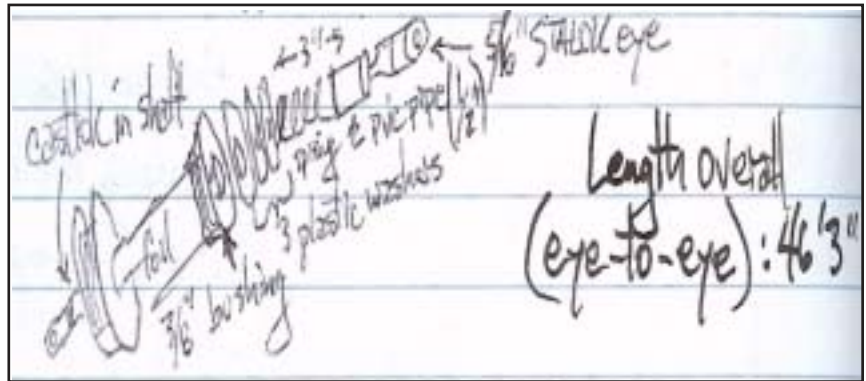 3"
5/16" STALOK eye
in shaft
foil
& pvc pipe (1/2")
3 plastic washers
3/16" bushing
Length overall
(eye-to-eye): 46'3"